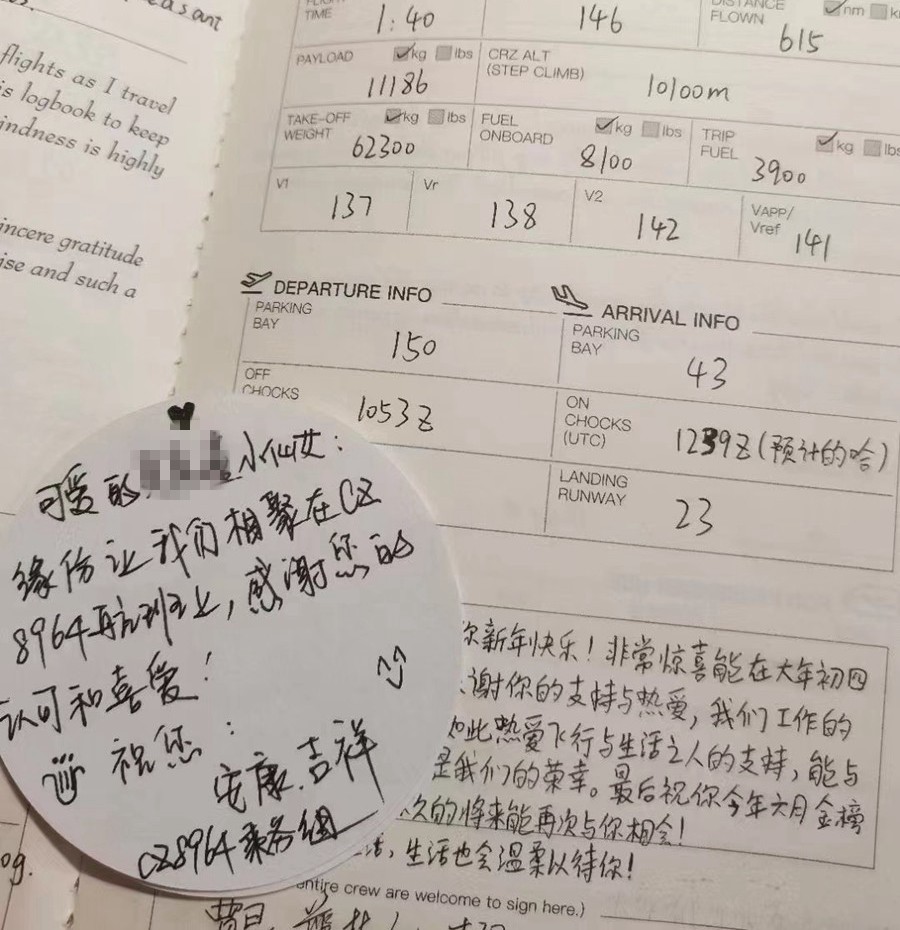 easant
flights as I travel
is logbook to keep
indness is highly
incere gratitude
ise and such a
TIME
1:40
146
DISTANCE
FLOWN
nm
615
PAYLOAD
kg
lbs
11186
CRZ ALT
(STEP CLIMB)
10100m
TAKE-OFF
WEIGHT
kg
lbs
62300
FUEL
ONBOARD
kg
lbs
8100
TRIP
FUEL
kg
lbs
3900
V1
137
Vr
138
V2
142
VAPP/
Vref
141
DEPARTURE INFO
PARKING
BAY
150
OFF
CHOCKS
1053Z
ARRIVAL INFO
PARKING
BAY
43
ON
CHOCKS
(UTC)
1239Z(预计的哈)
LANDING
RUNWAY
23
可爱的 小仙女:
缘份让我们相聚在CZ
8964航班上,感谢您的
认可和喜爱!
祝您:
安康.吉祥
CZ8964乘务组
你新年快乐!非常惊喜能在大年初四
谢你的支持与热爱,我们工作的
如此热爱飞行与生活之人的支持,能与
是我们的荣幸。最后祝你今年六月金榜
久的将来能再次与你相会!
活,生活也会温柔以待你!
entire crew are welcome to sign here.)
og.